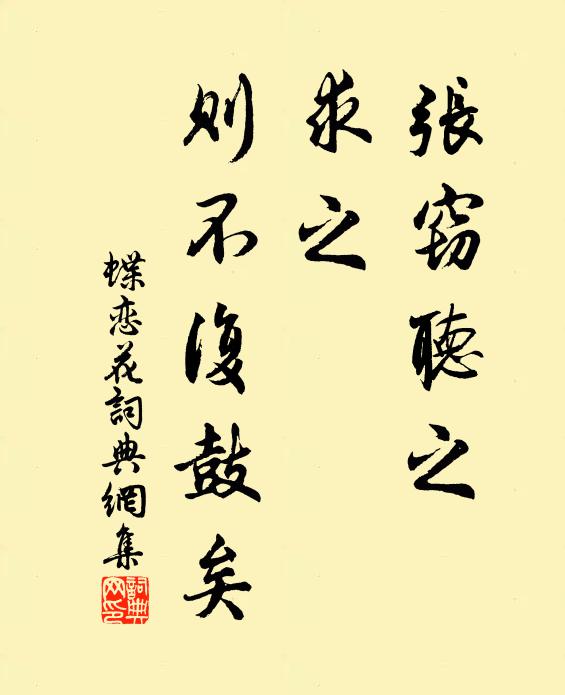 張窃聽之
求之
則不復鼓矣
蝶恋花詞典網集
詞典
网印